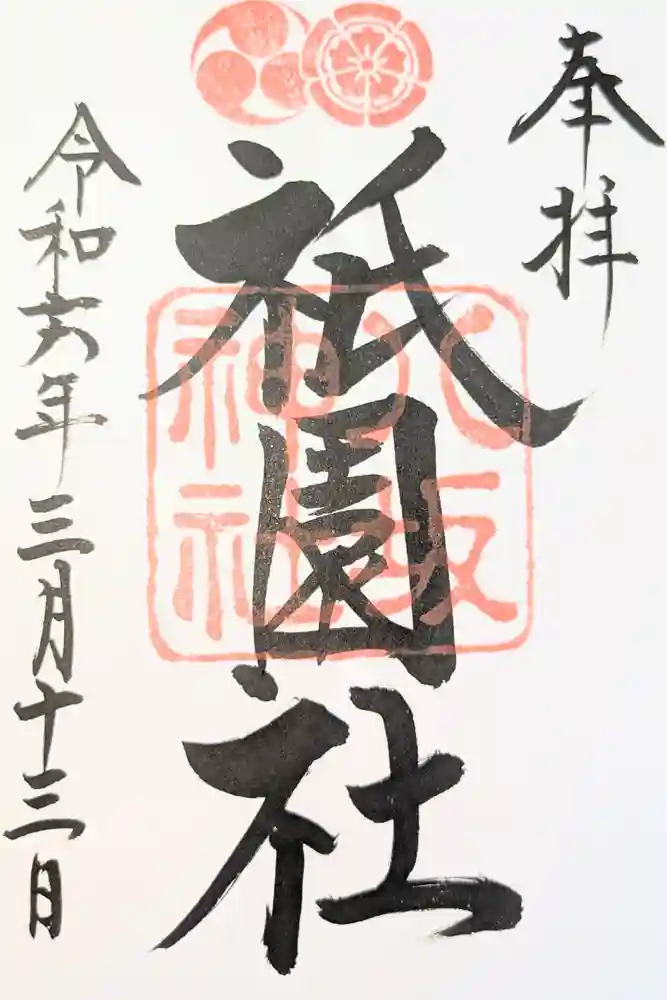 奉拝
祇園社
八坂
神社
令和六年三月十三日